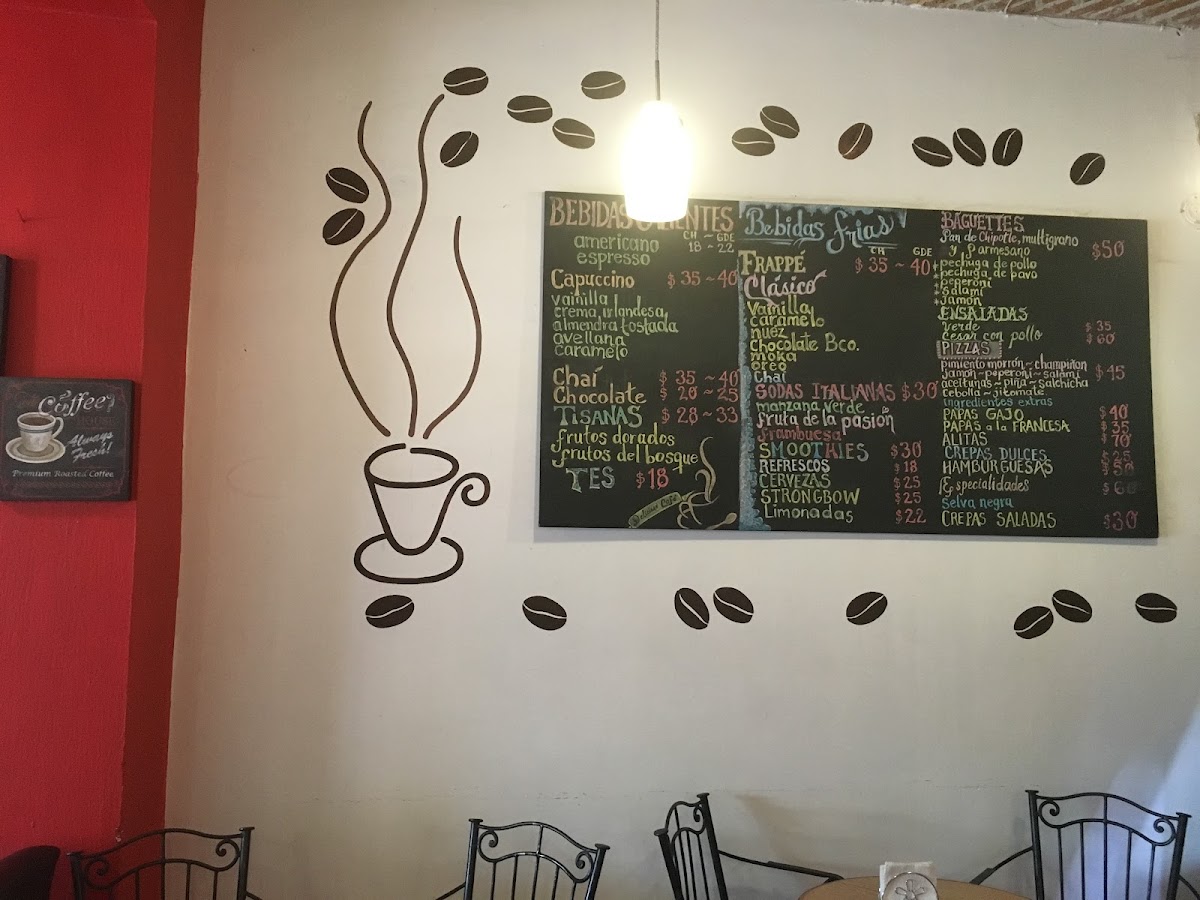 Coffee
HOUSE
Always
Fresh!
Premium Roasted Coffee
BEBIDAS CALIENTES
CH - GDE
americano 18 - 22
espresso
Capuccino $35~40
vainilla
crema irlandesa
almendra tostada
avellana
caramelo
Chai $35~40
Chocolate $20~25
TISANAS $28~33
frutos dorados
frutos del bosque
TES $18
Bebidas frias
CH GDE
FRAPPÉ $35~40
Clásico
Vainilla
caramelo
nuez
chocolate Bco.
moka
oreo
Chai
SODAS ITALIANAS $30
manzana verde
fruta de la pasión
frambuesa
SMOOTHIES $30
REFRESCOS $18
CERVEZAS $25
STRONGBOW $25
Limonadas $22
BAGUETTES
Pan de Chipotle, multigrano
y Parmesano $50
pechuga de pollo
pechuga de pavo
peperoni
salami
jamon
ENSALADAS
verde $35
cesar con pollo $60
PIZZAS
pimiento morrón~champiñon
jamón~peperoni~salami $45
aceitunas~piña~salchicha
cebolla~jitomate
ingredientes extras
PAPAS GAJO $40
PAPAS a la FRANCESA $35
ALITAS $70
CREPAS DULCES $25
HAMBURGUESAS $50
& especialidades $60
Selva negra
CREPAS SALADAS $30